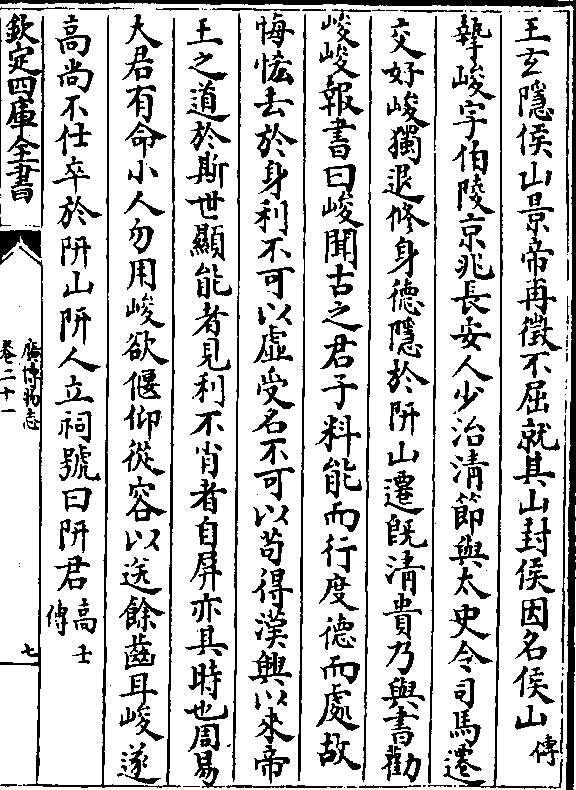 王玄隱侯山景帝再徵不屈就其山封侯因名侯山傳
摯峻字伯陵京兆長安人少治清節與太史令司馬遷
交好峻獨退修身德隱於阱山遷既清貴乃與書勸
峻峻報書曰峻聞古之君子料能而行度德而處故
悔恡去於身利不可以虚受名不可以苟得漢興以來帝
王之道於斯世顯能者見利不肖者自屏亦其時也周易
大君有命小人勿用峻欲偃仰從容以送餘齒耳峻遂
高尚不仕卒於阱山阱人立祠號曰阱君高士傳
欽定四庫全書
廣博物志
卷二十一
七